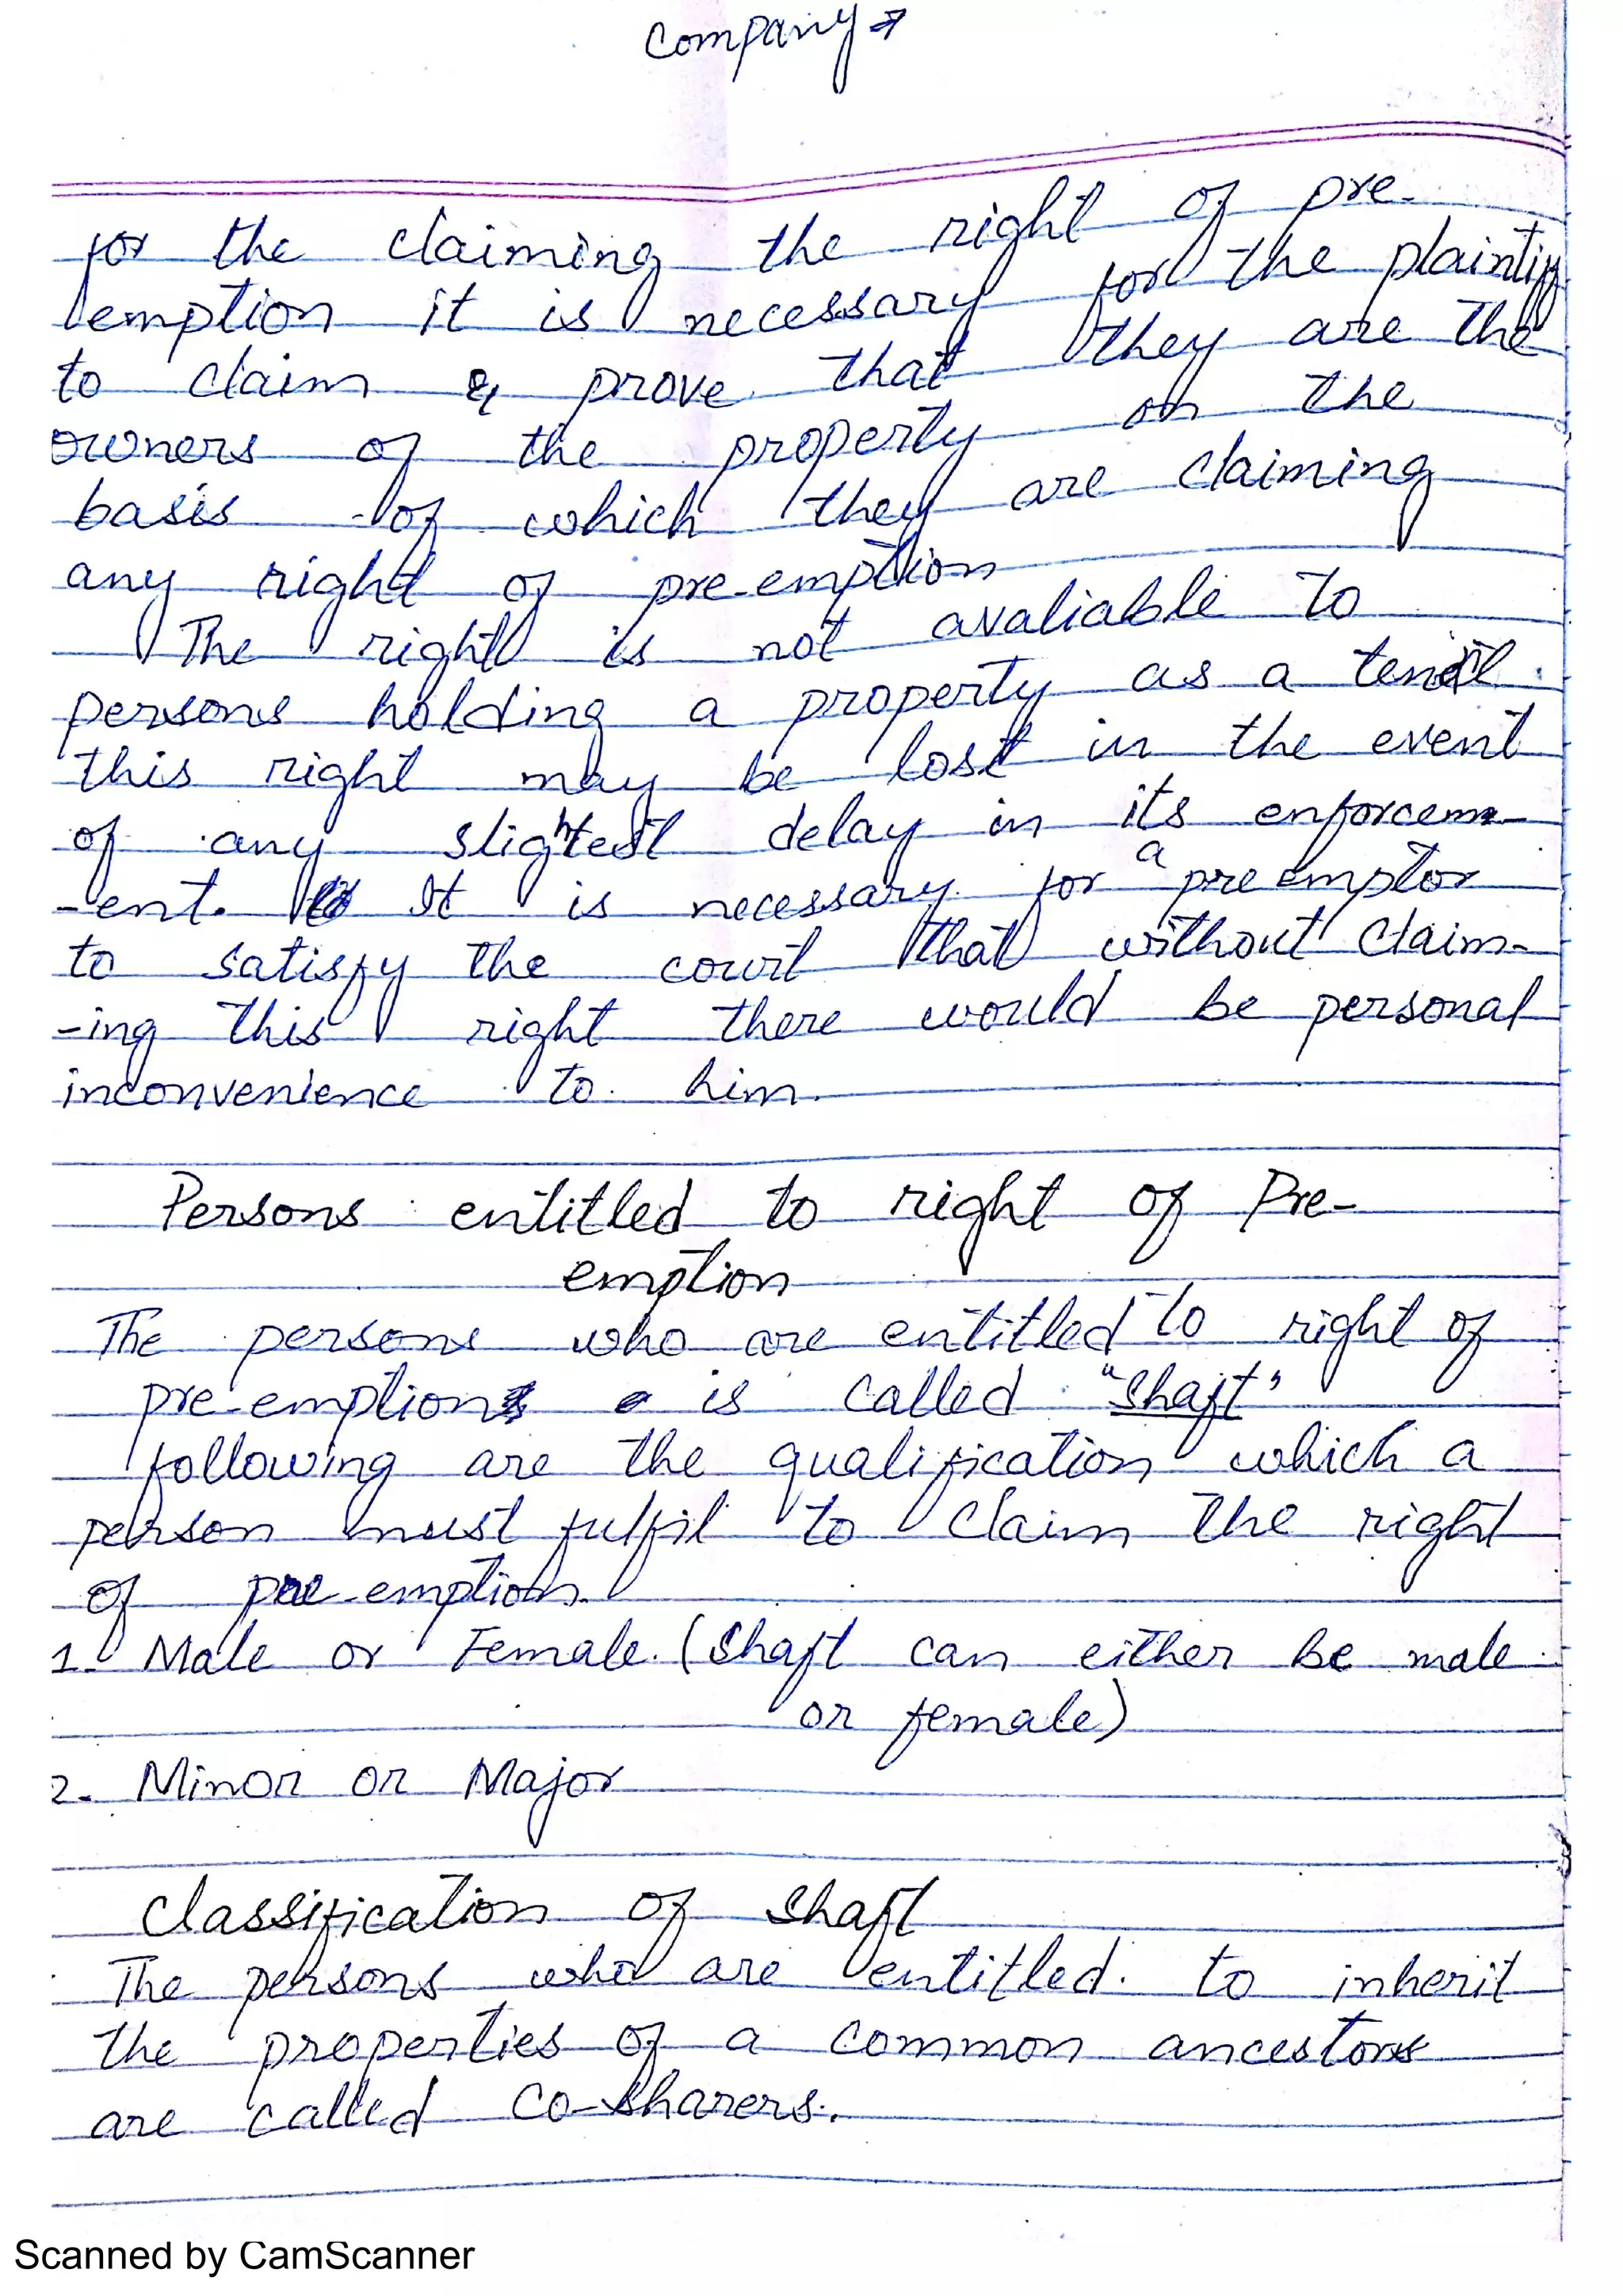 Company →
for the claiming the right of pre-
emption it is necessary for the plaintiff
to claim & prove that they are the
owners of the property on the
basis of which they are claiming
any right of pre-emption
The right is not avaliable to
persons holding a property as a
this right may be lost in the event
of any slightest delay in its enforcem-
-ent. It is necessary for a pre emptor
to satisfy the court that without claim-
-ing this right there would be personal
inconvenience to him.
Persons entitled to right of Pre-
emption
The persons who are entitled to right of
pre-emption is called "Shaft"
following are the qualification which a
person must fulfil to claim the right
of pre-emption.
1. Male or Female. (Shaft can either be male
or female)
2. Minor or Major
Classification of Shaft
The persons who are entitled to inherit
the properties of a common ancestors
are called co-sharers.
Scanned by CamScanner